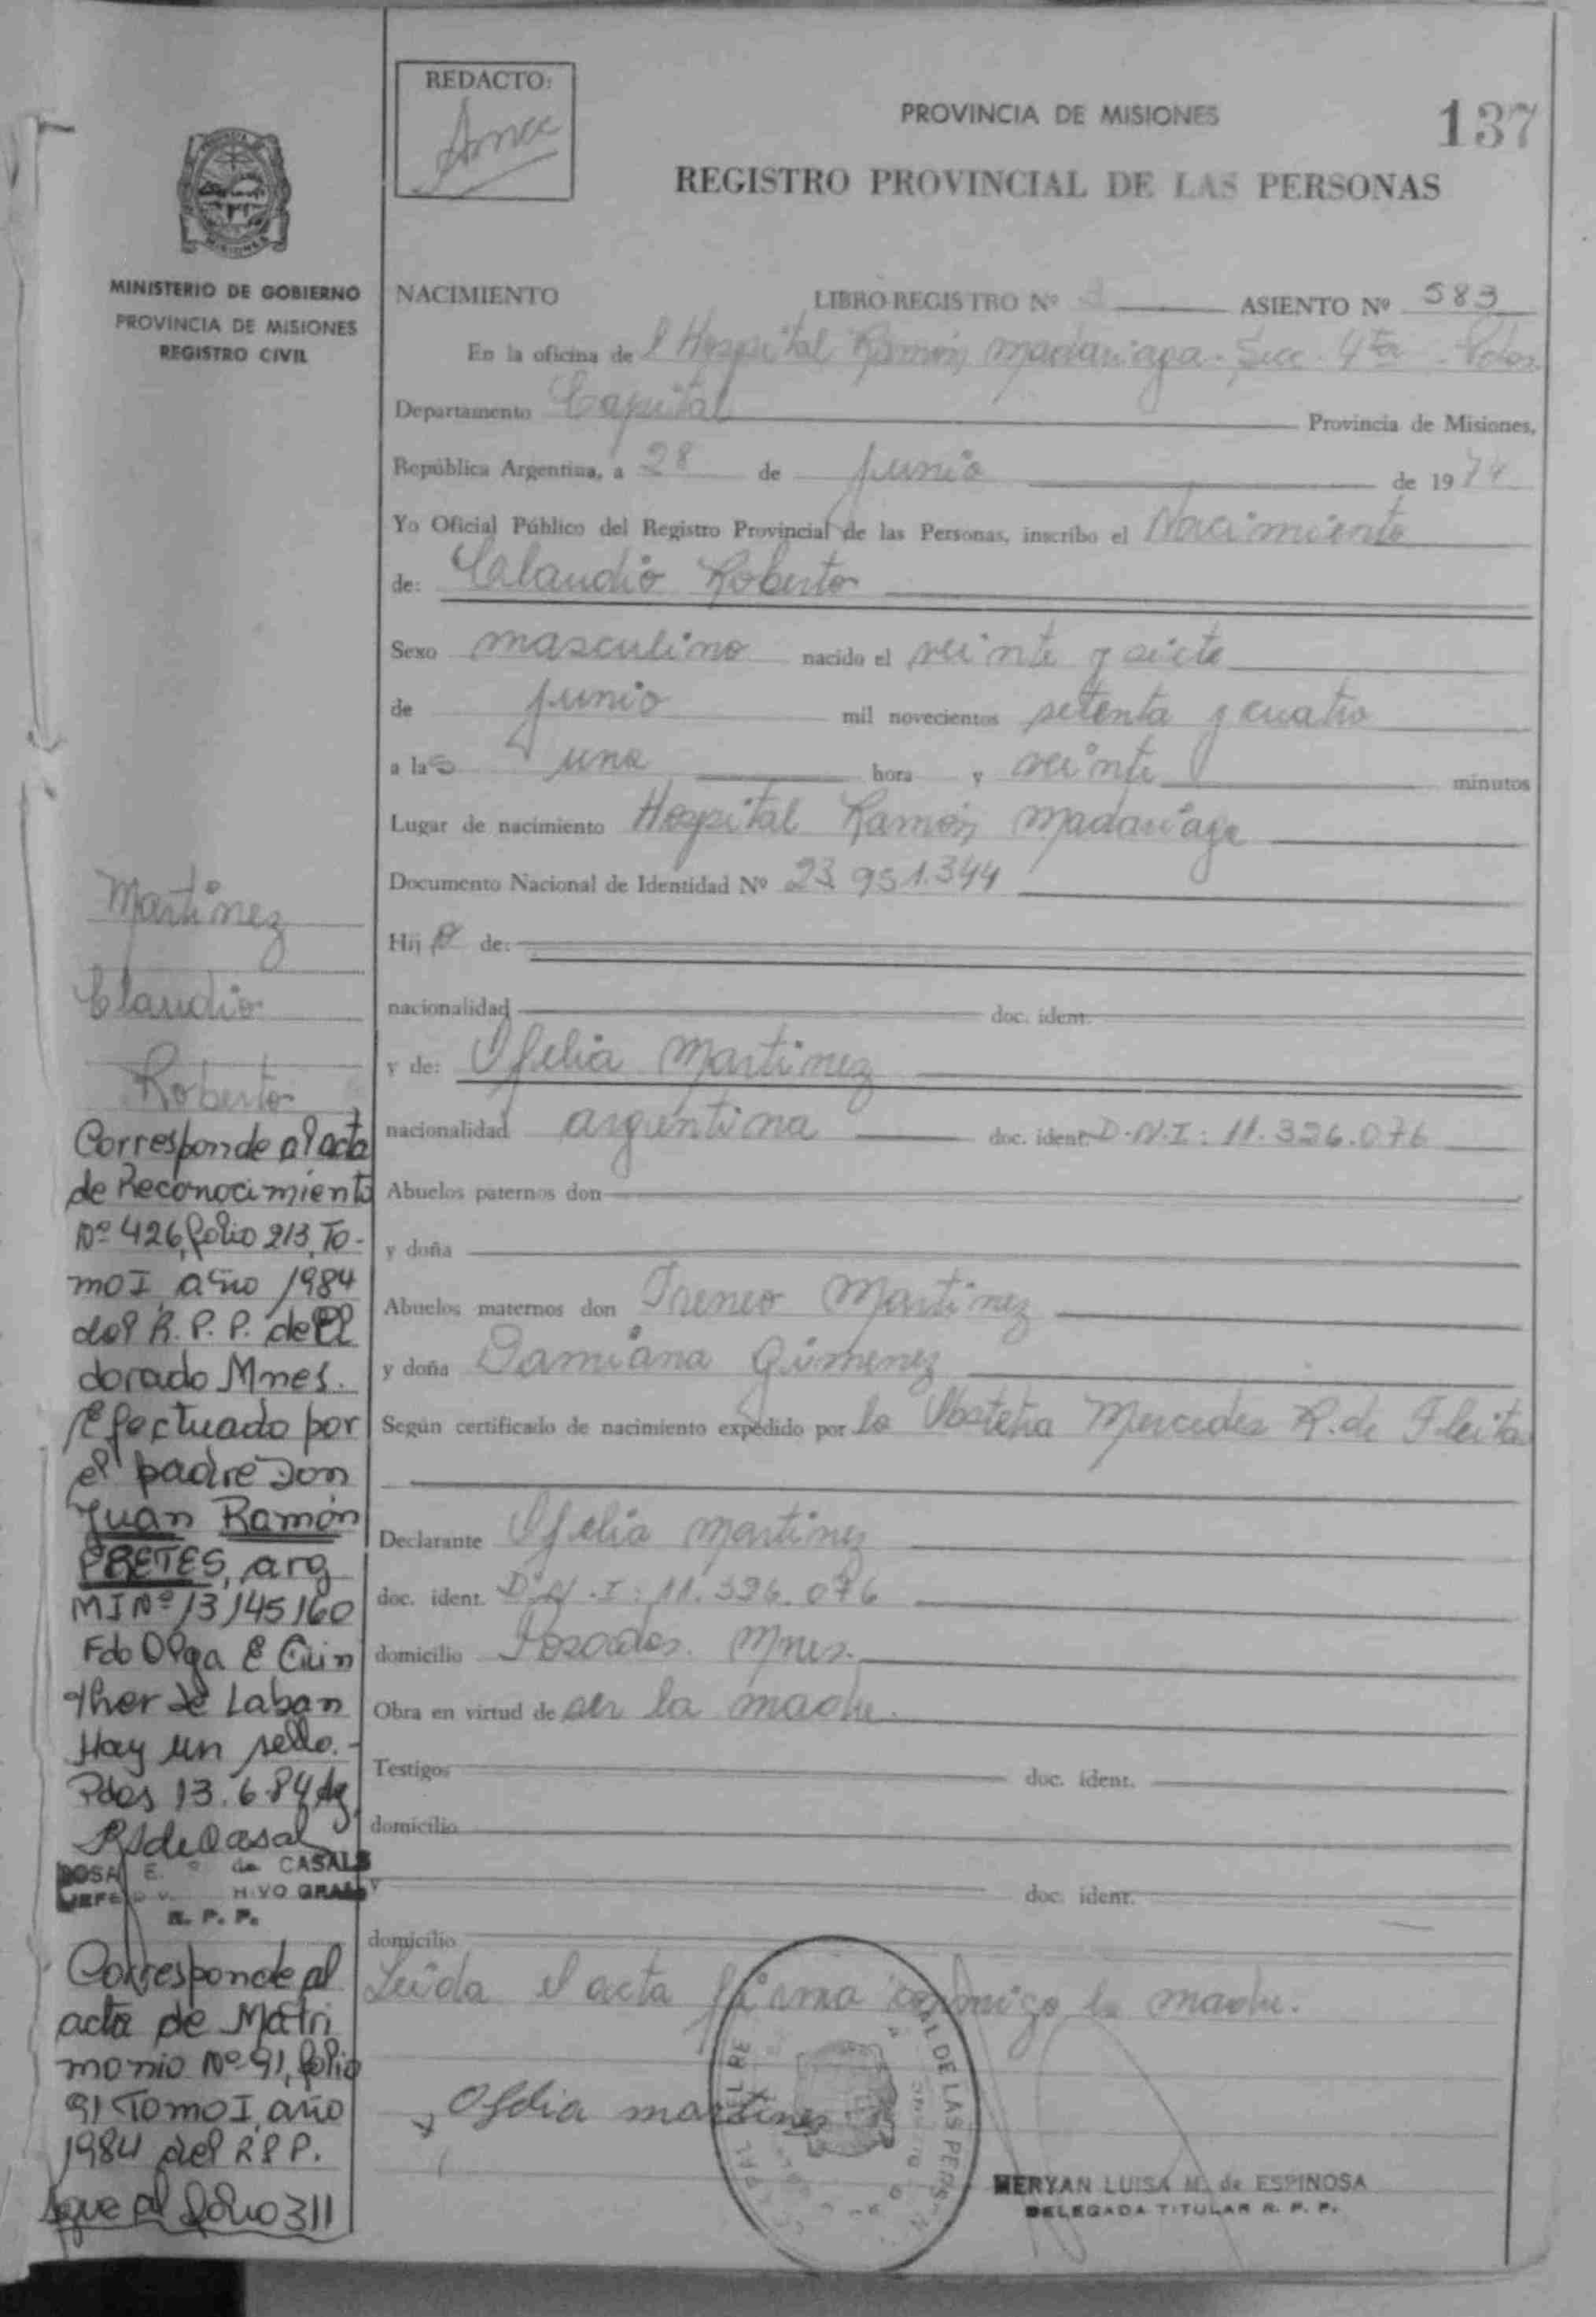 REDACTO:
PROVINCIA DE MISIONES
137
REGISTRO PROVINCIAL DE LAS PERSONAS
MINISTERIO DE GOBIERNO
PROVINCIA DE MISIONES
REGISTRO CIVIL
NACIMIENTO LIBRO REGISTRO Nº ASIENTO Nº 583
En la oficina de l Hospital Ramón Madariaga - Secc. 4ta
Departamento Capital Provincia de Misiones,
República Argentina, a 28 de junio de 1974
Yo Oficial Público del Registro Provincial de las Personas, inscribo el Nacimiento
de: Claudio Roberto
Sexo masculino nacido el veinte y siete
de junio mil novecientos setenta y cuatro
a las una hora y veinte minutos
Lugar de nacimiento Hospital Ramón Madariaga
Documento Nacional de Identidad Nº 23.951.344
Hijo de:
nacionalidad doc. ident.
y de: Ofelia Martinez
nacionalidad argentina doc. ident. D.N.I: 11.326.076
Abuelos paternos don
y doña
Abuelos maternos don Ireneo Martinez
y doña Damiana Gimenez
Según certificado de nacimiento expedido por la Obstetra Mercedes R. de Fleita
Declarante Ofelia Martinez
doc. ident. D.N.I: 11.326.076
domicilio Posadas. Mnes.
Obra en virtud de ser la madre.
Testigos doc. ident.
domicilio
doc. ident.
domicilio
Leida el acta firma conmigo la madre.
Ofelia martines
MERYAN LUISA M. de ESPINOSA
DELEGADA TITULAR R. P. P.
Martinez
Claudio
Roberto
Corresponde al acta
de Reconocimiento
Nº 426, folio 213, To-
mo I, año 1984
del R. P. P. de El
dorado Mnes.
Efectuado por
el padre Don
Juan Ramón
arg
MI Nº 13145160
Fdo Olga E
ther de Laban
Hay un sello.-
Pdas 13.6.84
ROSA E. de CASALS
R. P. P.
Corresponde al
acta de Matri
monio Nº 91, folio
91 Tomo I, año
1984 del R P P.
sgue al folio 311